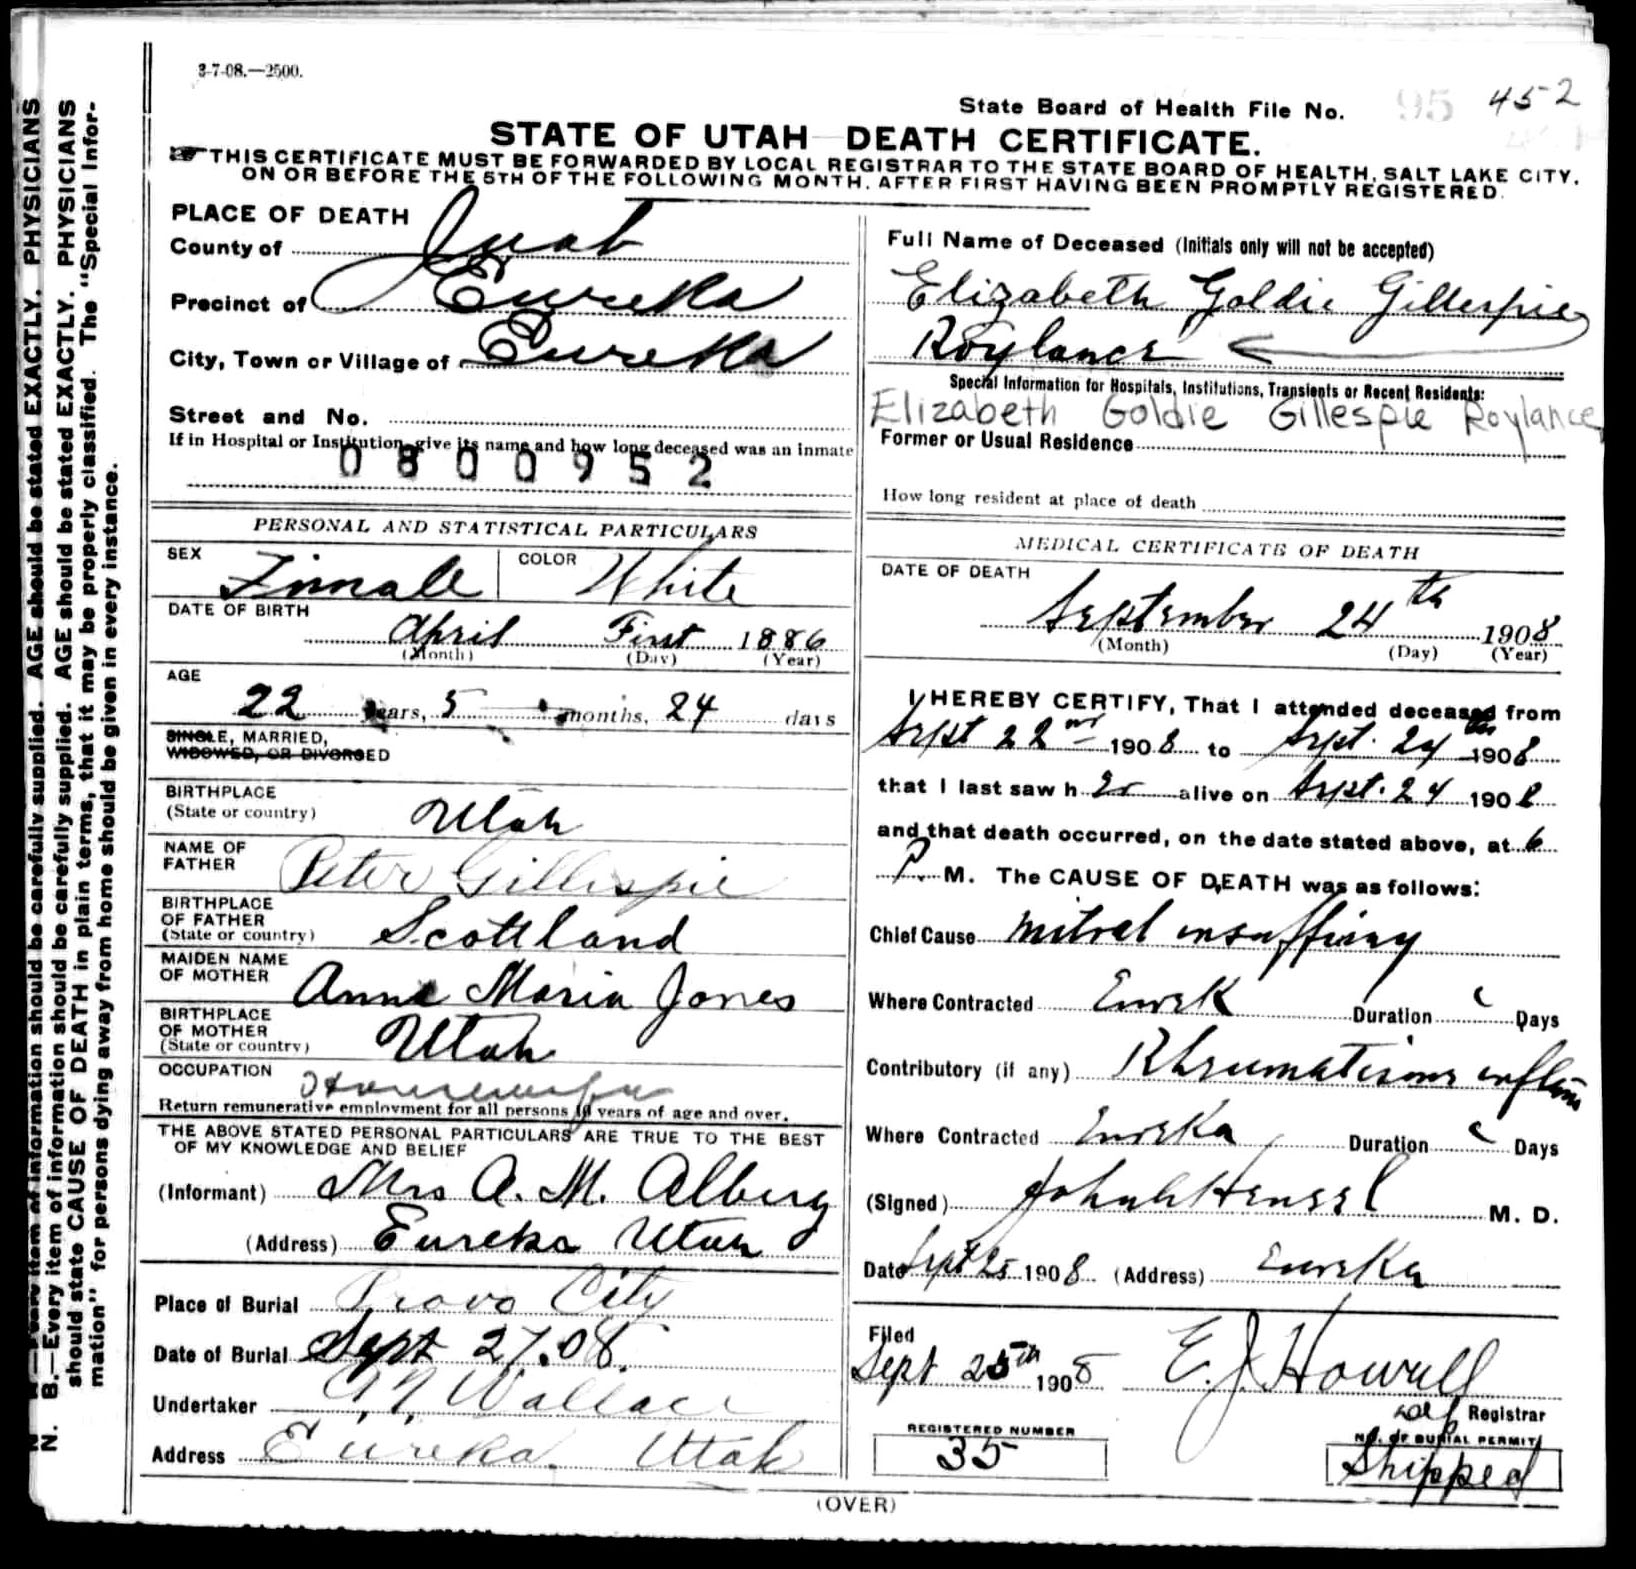 3-7-08.—2500.
State Board of Health File No. 95 452
STATE OF UTAH DEATH CERTIFICATE.
THIS CERTIFICATE MUST BE FORWARDED BY LOCAL REGISTRAR TO THE STATE BOARD OF HEALTH, SALT LAKE CITY,
ON OR BEFORE THE 5TH OF THE FOLLOWING MONTH, AFTER FIRST HAVING BEEN PROMPTLY REGISTERED.
PLACE OF DEATH
County of Juab
Precinct of Eureka
City, Town or Village of Eureka
Street and No.
If in Hospital or Institution, give its name and how long deceased was an inmate
0800952
PERSONAL AND STATISTICAL PARTICULARS
SEX Fimale COLOR White
DATE OF BIRTH
April First 1886
(Month) (Day) (Year)
AGE
22 years, 5 months, 24 days
SINGLE, MARRIED,
WIDOWED, OR DIVORCED
BIRTHPLACE
(State or country) Utah
NAME OF
FATHER Peter Gillispie
BIRTHPLACE
OF FATHER
(State or country) Scottland
MAIDEN NAME
OF MOTHER Anna Maria Jones
BIRTHPLACE
OF MOTHER
(State or country) Utah
OCCUPATION Housewife
Return remunerative employment for all persons 10 years of age and over.
THE ABOVE STATED PERSONAL PARTICULARS ARE TRUE TO THE BEST
OF MY KNOWLEDGE AND BELIEF
(Informant) Mrs A. M. Alberg
(Address) Eureka Utah
Place of Burial Provo City
Date of Burial Sept 27.08.
Undertaker Wallace
Address Eureka. Uttah
Full Name of Deceased (Initials only will not be accepted)
Elizabeth Goldie Gillespie
Roylance
Special Information for Hospitals, Institutions, Transients or Recent Residents:
Elizabeth Goldie Gillespie Roylance
Former or Usual Residence
How long resident at place of death
MEDICAL CERTIFICATE OF DEATH
DATE OF DEATH
September 24th 1908
(Month) (Day) (Year)
I HEREBY CERTIFY, That I attended deceased from
Sept 22nd 1908 to Sept. 24th 1908
that I last saw h er alive on Sept. 24 1908
and that death occurred, on the date stated above, at 6
P. M. The CAUSE OF DEATH was as follows:
Chief Cause mitral insuffiincy
Where Contracted Eurek Duration Days
Contributory (if any) Rheumatism inflam
Where Contracted Eureka Duration Days
(Signed) John Hensel M. D.
Date Sept 25 1908 (Address) Eureka
Filed
Sept 25th 1908 E. J. Howell
Registrar
REGISTERED NUMBER
35
NO. OF BURIAL PERMIT
Shipped
(OVER)
N. B.—Every item of information should be carefully supplied. AGE should be stated EXACTLY. PHYSICIANS
should state CAUSE OF DEATH in plain terms, that it may be properly classified. The "Special Infor-
mation" for persons dying away from home should be given in every instance.